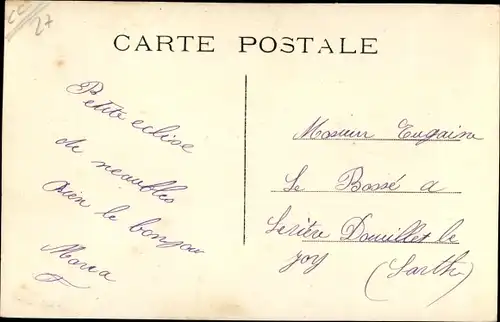 CC
27
CARTE POSTALE
Petite eclise
de neaublles
bien le bonjour
Maria
Mosieur Eugaine
Le Bossé a
Douillet le
joy
(Sarth)